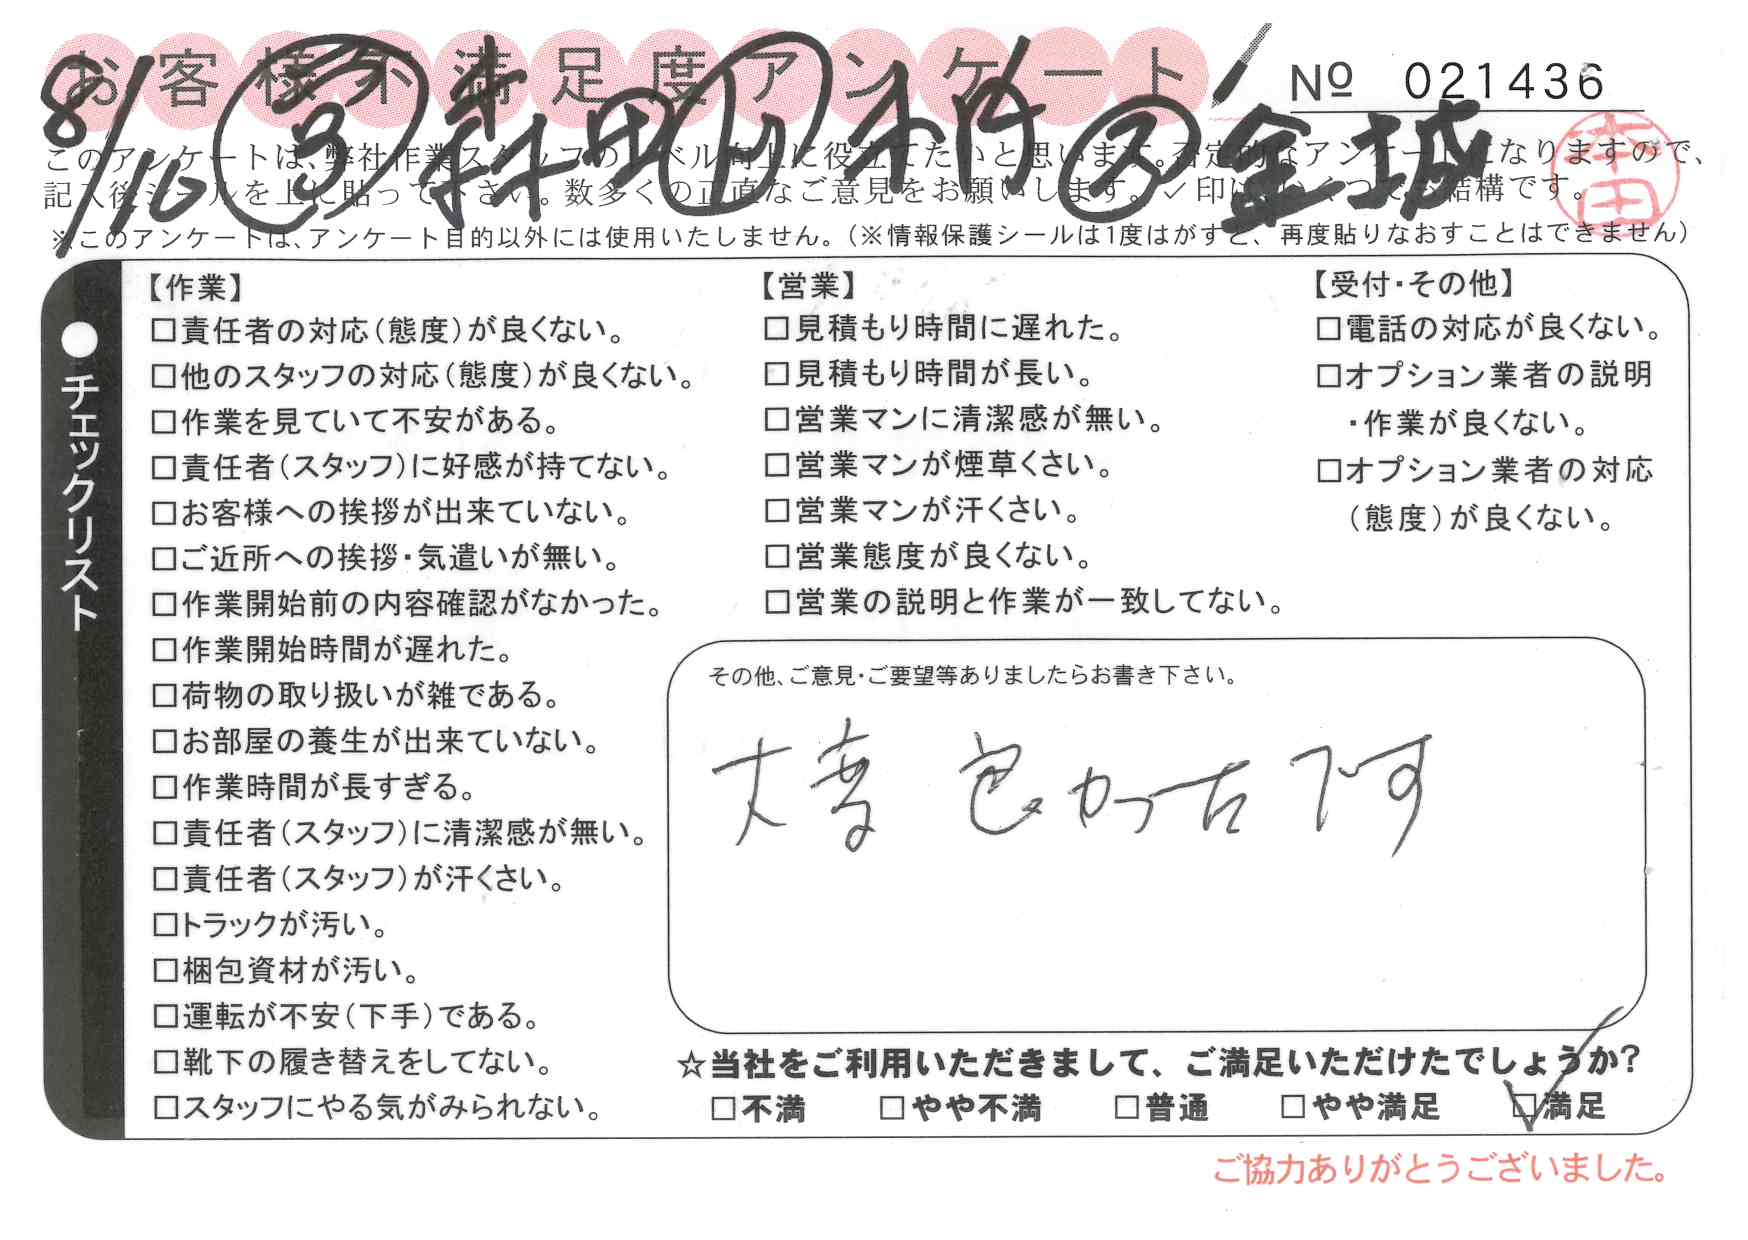 お客様不満足度アンケート
№ 021436
8/10
金城
このアンケートは、弊社作業スタッフのレベル向上に役立てたいと思います。否定的なアンケートになりますので、
記入後シールを上に貼って下さい。数多くの正直なご意見をお願いします。✓印はいくつでも結構です。
※このアンケートは、アンケート目的以外には使用いたしません。（※情報保護シールは1度はがすと、再度貼りなおすことはできません）
●チェックリスト
【作業】
□責任者の対応（態度）が良くない。
□他のスタッフの対応（態度）が良くない。
□作業を見ていて不安がある。
□責任者（スタッフ）に好感が持てない。
□お客様への挨拶が出来ていない。
□ご近所への挨拶・気遣いが無い。
□作業開始前の内容確認がなかった。
□作業開始時間が遅れた。
□荷物の取り扱いが雑である。
□お部屋の養生が出来ていない。
□作業時間が長すぎる。
□責任者（スタッフ）に清潔感が無い。
□責任者（スタッフ）が汗くさい。
□トラックが汚い。
□梱包資材が汚い。
□運転が不安（下手）である。
□靴下の履き替えをしてない。
□スタッフにやる気がみられない。
【営業】
□見積もり時間に遅れた。
□見積もり時間が長い。
□営業マンに清潔感が無い。
□営業マンが煙草くさい。
□営業マンが汗くさい。
□営業態度が良くない。
□営業の説明と作業が一致してない。
【受付・その他】
□電話の対応が良くない。
□オプション業者の説明
・作業が良くない。
□オプション業者の対応
（態度）が良くない。
その他、ご意見・ご要望等ありましたらお書き下さい。
大変良かったです
☆当社をご利用いただきまして、ご満足いただけたでしょうか？
□不満 □やや不満 □普通 □やや満足 ☑満足
ご協力ありがとうございました。